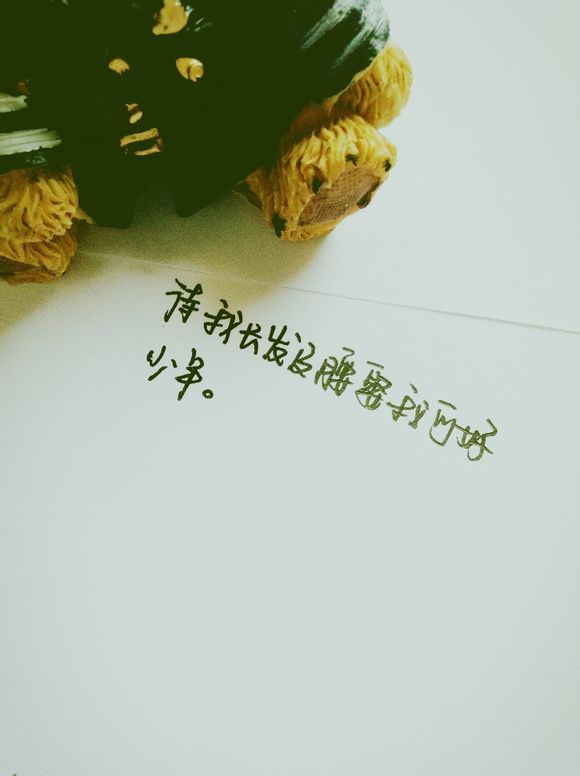 待我长发及腰娶我可好
少年。